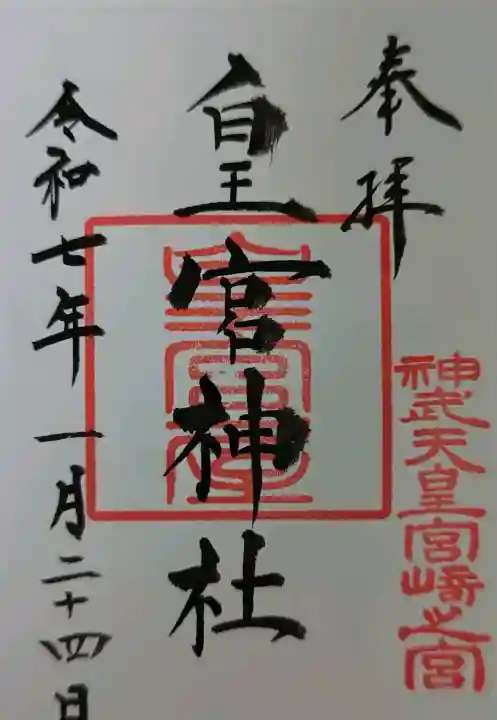 奉拝
神武天皇宮崎之宮
皇宮神社
令和七年一月二十四日